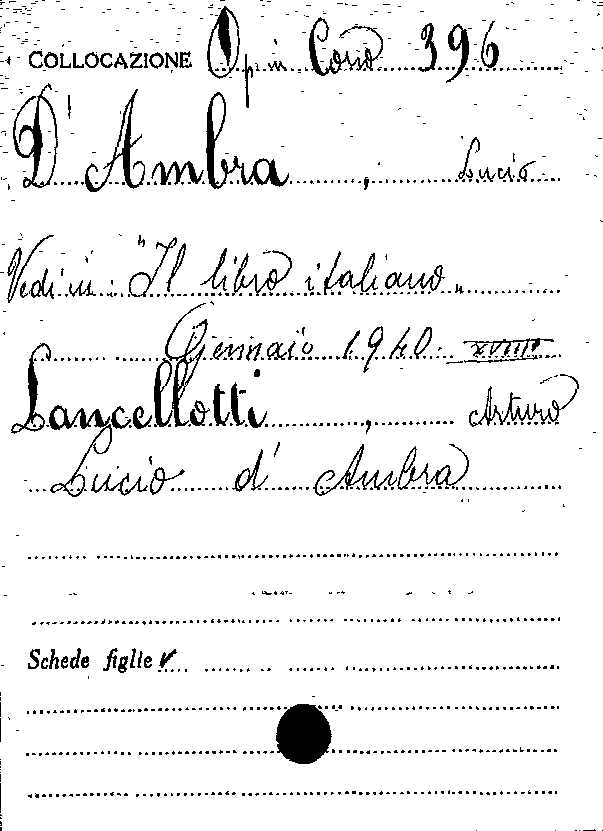 COLLOCAZIONE Op in Corso 396
D'Ambra , Lucio
Vedi in: "Il libro italiano„
Gennaio 1940. XVIII°
Lancellotti , Arturo
Lucio d'Ambra
Schede figlie ✓